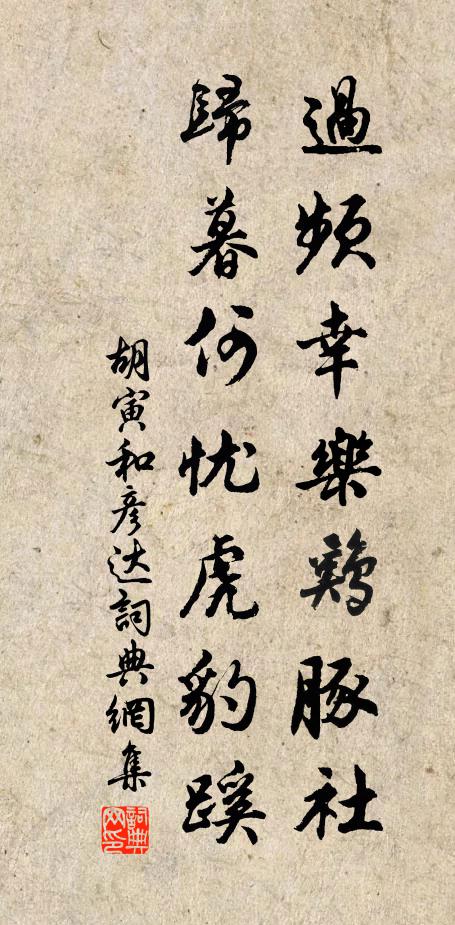 過頻幸樂鷄豚社
歸暮何忧虎豹蹊
胡寅和彥达詞典網集
詞典网印